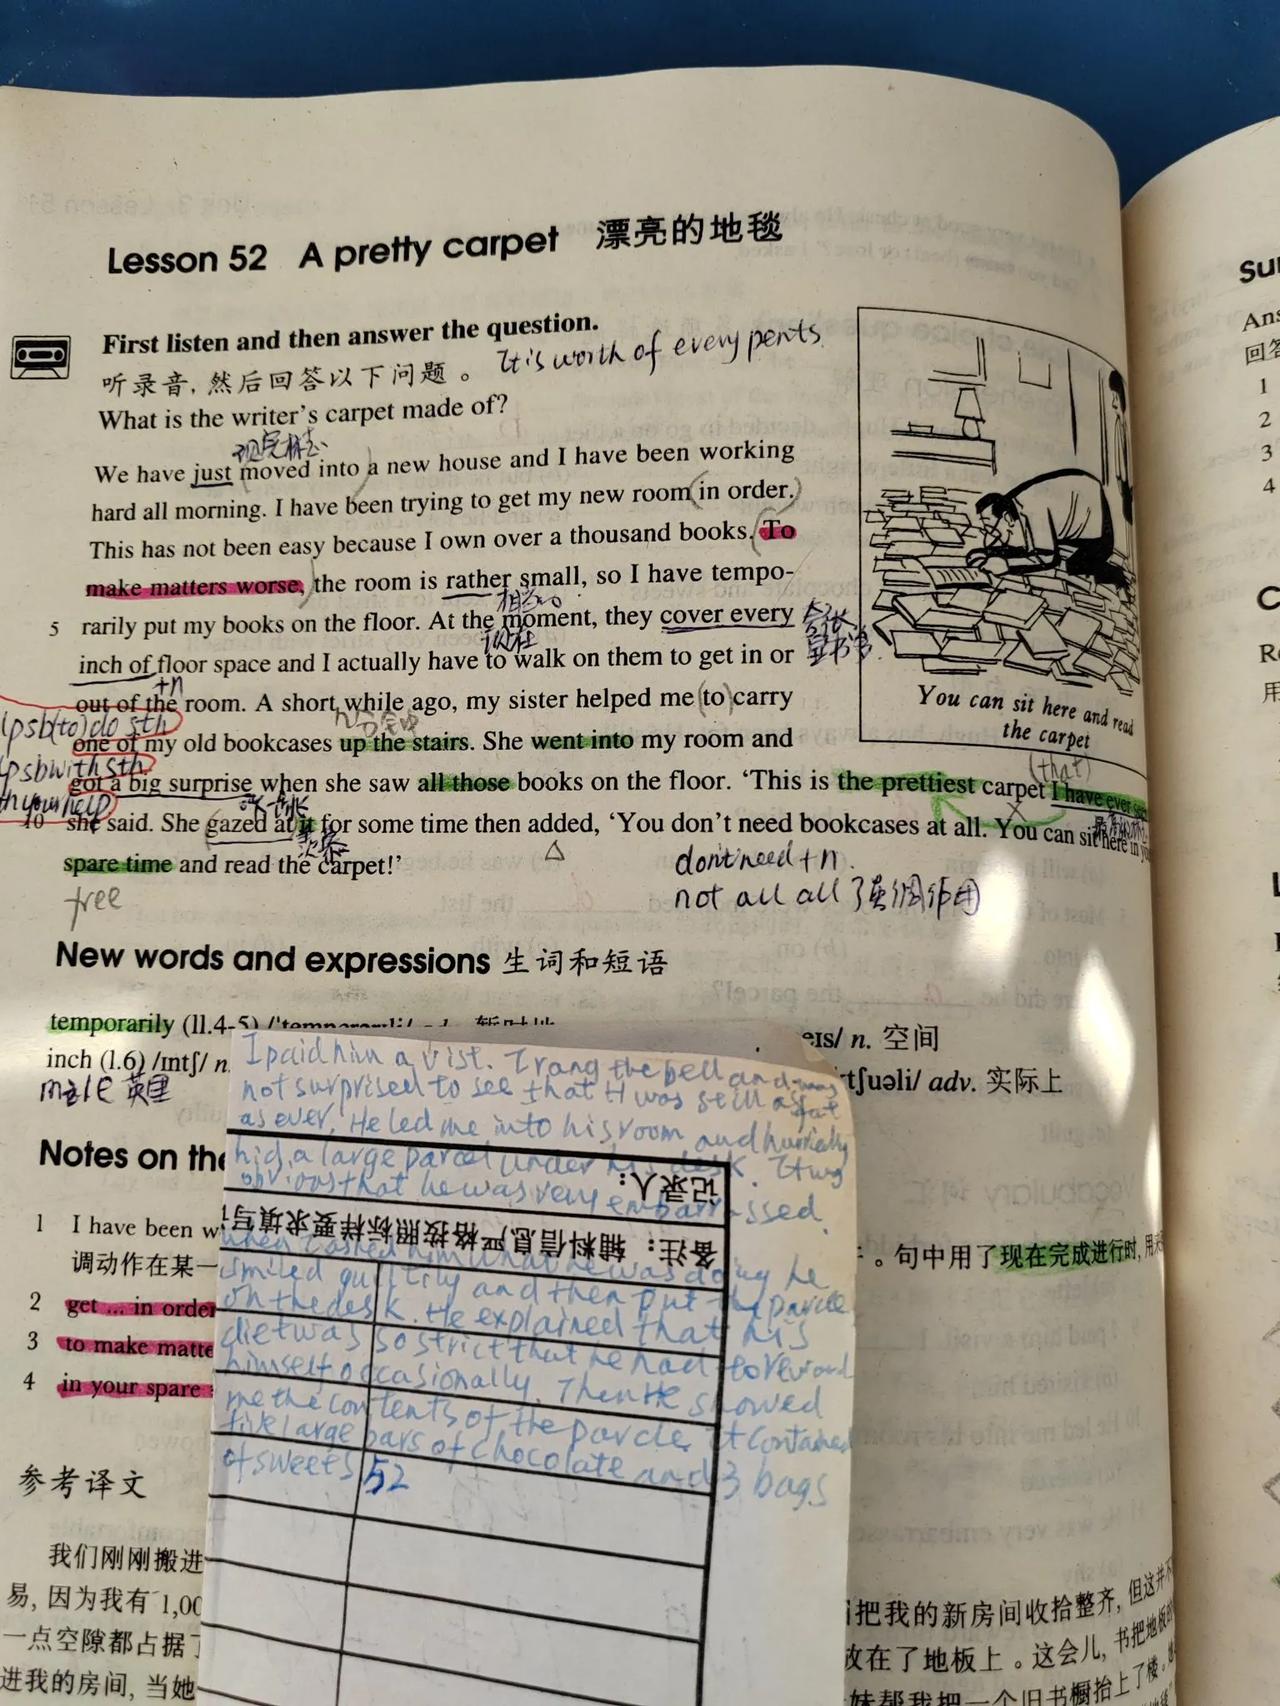 Lesson 52 A pretty carpet 漂亮的地毯
First listen and then answer the question.
听录音,然后回答以下问题。
It is worth of every pents
What is the writer's carpet made of?
We have just moved into a new house and I have been working
hard all morning. I have been trying to get my new room in order.
This has not been easy because I own over a thousand books. To
make matters worse, the room is rather small, so I have tempo-
5 rarily put my books on the floor. At the moment, they cover every
inch of floor space and I actually have to walk on them to get in or
+n
out of the room. A short while ago, my sister helped me (to) carry
one of my old bookcases up the stairs. She went into my room and
got a big surprise when she saw all those books on the floor. 'This is the prettiest carpet I have ever
(that)
10 she said. She gazed at it for some time then added, 'You don't need bookcases at all. You can sit here in
spare time and read the carpet!'
free
dont need + n.
not all all
psb(to)do sth
psbwith sth
your help
You can sit here and read
the carpet
New words and expressions 生词和短语
temporarily (ll.4-5)
inch (l.6) /ɪntʃ/ n
eɪs/ n. 空间
tʃuəli/ adv. 实际上
mile 英里
Notes on the
1 I have been w
调动作在某一
。句中用了现在完成进行时,
2 get ... in order
3 to make matte
4 in your spare
I paid him a vist. I rang the bell and was
not surprised to see that H was still as fat
as ever. He led me into his room and hurriedly
hid a large parcel under his desk. It was
obvious that he was very embarrassed.
when I asked him what he was doing he
smiled guiltily and then put the parcle
on the desk. He explained that his
diet was so strict that he had to reward
himself occasionally. Then He showed
me the contents of the parcle. It contained
five large bars of chocolate and 3 bags
of sweets 52
记录人:
备注: 辅料信息严格按照标样要求填写
参考译文
我们刚刚搬进
易,因为我有 1,00
一点空隙都占据了
进我的房间,当她
把我的新房间收拾整齐,但这并不
放在了地板上。这会儿,书把地板的
妹帮我把一个旧书橱抬上了楼。